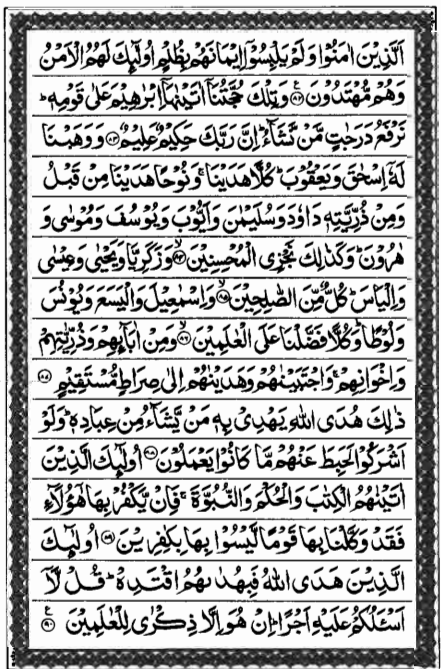 اَلَّذِیْنَ اٰمَنُوْا وَلَمْ یَلْبِسُوْۤا اِیْمَانَهُمْ بِظُلْمٍ اُولٰٓئِكَ لَهُمُ الْاَمْنُ
وَهُمْ مُّهْتَدُوْنَ ﴿۸۲﴾ وَتِلْكَ حُجَّتُنَاۤ اٰتَیْنٰهَاۤ اِبْرٰهِیْمَ عَلٰی قَوْمِهٖ ؕ
نَرْفَعُ دَرَجٰتٍ مَّنْ نَّشَآءُ ؕ اِنَّ رَبَّكَ حَكِیْمٌ عَلِیْمٌ ﴿۸۳﴾ وَوَهَبْنَا
لَهٗۤ اِسْحٰقَ وَیَعْقُوْبَ ؕ كُلًّا هَدَیْنَا ۚ وَنُوْحًا هَدَیْنَا مِنْ قَبْلُ
وَمِنْ ذُرِّیَّتِهٖ دَاوٗدَ وَسُلَیْمٰنَ وَاَیُّوْبَ وَیُوْسُفَ وَمُوْسٰی وَ
هٰرُوْنَ ؕ وَكَذٰلِكَ نَجْزِی الْمُحْسِنِیْنَ ﴿۸۴﴾ وَزَكَرِیَّا وَیَحْیٰی وَعِیْسٰی
وَاِلْیَاسَ ؕ كُلٌّ مِّنَ الصّٰلِحِیْنَ ﴿۸۵﴾ وَاِسْمٰعِیْلَ وَالْیَسَعَ وَیُوْنُسَ
وَلُوْطًا ؕ وَكُلًّا فَضَّلْنَا عَلَی الْعٰلَمِیْنَ ﴿۸۶﴾ وَمِنْ اٰبَآئِهِمْ وَذُرِّیّٰتِهِمْ
وَاِخْوَانِهِمْ ۚ وَاجْتَبَیْنٰهُمْ وَهَدَیْنٰهُمْ اِلٰی صِرَاطٍ مُّسْتَقِیْمٍ ﴿۸۷﴾
ذٰلِكَ هُدَی اللّٰهِ یَهْدِیْ بِهٖ مَنْ یَّشَآءُ مِنْ عِبَادِهٖ ؕ وَلَوْ
اَشْرَكُوْا لَحَبِطَ عَنْهُمْ مَّا كَانُوْا یَعْمَلُوْنَ ﴿۸۸﴾ اُولٰٓئِكَ الَّذِیْنَ
اٰتَیْنٰهُمُ الْكِتٰبَ وَالْحُكْمَ وَالنُّبُوَّةَ ۚ فَاِنْ یَّكْفُرْ بِهَا هٰۤؤُلَآءِ
فَقَدْ وَكَّلْنَا بِهَا قَوْمًا لَّیْسُوْا بِهَا بِكٰفِرِیْنَ ﴿۸۹﴾ اُولٰٓئِكَ
الَّذِیْنَ هَدَی اللّٰهُ فَبِهُدٰىهُمُ اقْتَدِهْ ؕ قُلْ لَّاۤ
اَسْـَٔلُكُمْ عَلَیْهِ اَجْرًا ؕ اِنْ هُوَ اِلَّا ذِكْرٰی لِلْعٰلَمِیْنَ ﴿۹۰﴾